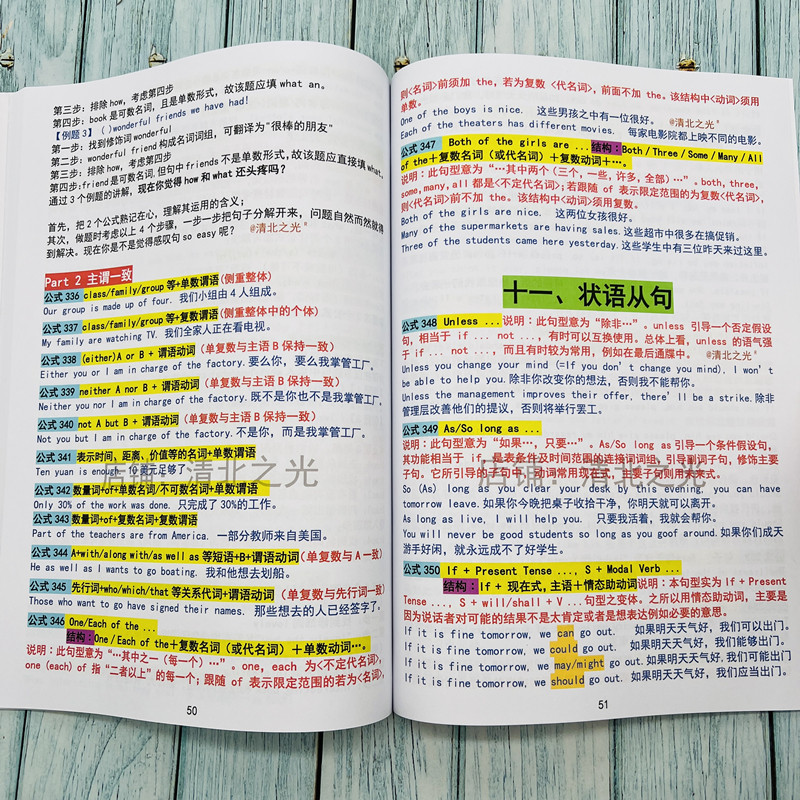 第三步：排除how, 考虑第四步
第四步：book是可数名词，且是单数形式，故该题应填what an。
【例题3】 ( )wonderful friends we have had!
第一步：找到修饰词wonderful
第二步：wonderful friend构成名词词组，可翻译为"很棒的朋友"
第三步：排除how, 考虑第四步
第四步:friend是可数名词,但句中friends不是单数形式,故该题应直接填what。
通过3个例题的讲解，现在你觉得how和what还头疼吗?
首先，把2个公式熟记在心，理解其运用的含义；
其次，做题时考虑以上4个步骤，一步一步把句子分解开来，问题自然而然就得
到解决。现在你是不是觉得感叹句so easy呢? @清北之光"
Part 2 主谓一致
公式336 class/family/group等+单数谓语(侧重整体)
Our group is made up of four. 我们小组由4人组成。
公式337 class/family/group等+复数谓语(侧重整体中的个体)
My family are watching TV. 我们全家人正在看电视。
公式338 (either)A or B + 谓语动词(单复数与主语B保持一致)
Either you or I am in charge of the factory.要么你，要么我掌管工厂。
公式339 neither A nor B + 谓语动词(单复数与主语B保持一致)
Neither you nor I am in charge of the factory.既不是你也不是我掌管工厂。
公式340 not A but B + 谓语动词(单复数与主语B保持一致)
Not you but I am in charge of the factory.不是你，而是我掌管工厂。
公式341 表示时间、距离、价值等的名词+单数谓语
Ten yuan is enough. 10美元足够了。
店铺：清北之光
公式342 数量词+of+单数名词/不可数名词+单数谓语
Only 30% of the work was done. 只完成了30%的工作。
公式343 数量词+of+复数名词+复数谓语
Part of the teachers are from America. 一部分教师来自美国。
公式344 A+with/along with/as well as等短语+B+谓语动词(单复数与A一致)
He as well as I wants to go boating. 我和他想去划船。
公式345 先行词+who/which/that等关系代词+谓语动词(单复数与先行词一致)
Those who want to go have signed their names. 那些想去的人已经签字了。
公式346 One/Each of the ...
结构：One/Each of the+复数名词（或代名词）+单数动词…。
说明：此句型意为"…其中之一（每一个）…"。one, each为<不定代名词>,
one (each) of 指"二者以上"的每一个；跟随of表示限定范围的若为<名词>,
50
则<名词>前须加 the，若为复数 <代名词>，前面不加 the。该结构中<动词>须用
单数。
One of the boys is nice. 这些男孩之中有一位很好。 @清北之光"
Each of the theaters has different movies. 每家电影院都上映不同的电影。
公式347 Both of the girls are ...结构：Both/Three/Some/Many/All
of the+复数名词（或代名词）+复数动词+…。
说明：此句型意为"…其中两个（三个，一些，许多，全部）…"。both, three,
some, many, all都是<不定代名词>；若跟随of表示限定范围的为复数<代名词>,
则<名词>前不加the。该结构中<动词>须用复数。
Both of the girls are nice. 这两位女孩很好。
Many of the supermarkets are having sales.这些超市中很多在搞促销。
Three of the students came here yesterday.这些学生中有三位昨天来过这里。
十一、状语从句
公式348 Unless ...说明：此句型意为"除非…"。unless 引导一个否定假设
句，相当于 if ... not ...，有时可以互换使用。总体上看，unless的语气强
于 if ... not ...，而且有时较为常用，例如在最后通牒中。 @清北之光"
Unless you change your mind (=If you don't change you mind), I won't
be able to help you.除非你改变你的想法，否则我不能帮你。
Unless the management improves their offer, there'll be a strike.除非
管理层改善他们的提议，否则将举行罢工。
公式349 As/So long as ...
说明：此句型意为"如果…，只要…"。As/So long as引导一个条件假设句，
其功能相当于 if，是表条件及时间范围的连接词词组，引导副词子句，修饰主要
子句。它所引导的子句中，动词常用现在式，主要子句则用未来式。
店铺：清北之光
So (As) long as you clear your desk by this evening, you can have
tomorrow leave.如果你今晚把桌子收拾干净，你明天就可以离开。
As long as live, I will help you. 只要我活着，我就会帮你。
You will never be good students so long as you goof around.如果你们成天
游手好闲，就永远成不了好学生。
公式350 If + Present Tense ..., S + Modal Verb ...
结构：If + 现在式，主语＋情态助动词说明：本句型实为 If + Present
Tense ..., S + will/shall + V ...句型之变体。之所以用情态助动词，主要是
因为说话者对可能的结果不是太肯定或者是想表达例如必要的意思。
If it is fine tomorrow, we can go out. 如果明天天气好，我们可以出门。
If it is fine tomorrow, we could go out. 如果明天天气好，我们能够出门。
If it is fine tomorrow, we may/might go out.如果明天天气好,我们可能出门
If it is fine tomorrow, we should go out. 如果明天天气好，我们应当出门。
51